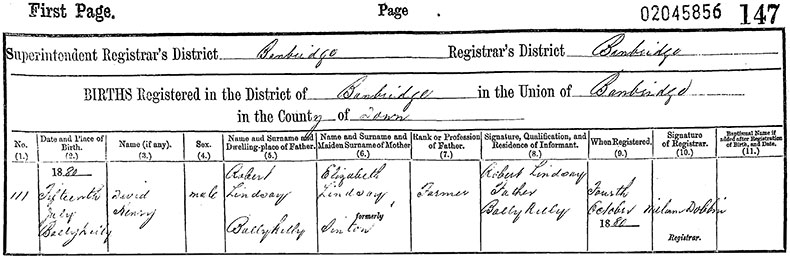 First Page. Page 02045856 147
Superintendent Registrar's District Banbridge Registrar's District Banbridge
BIRTHS Registered in the District of Banbridge in the Union of Banbridge
in the County of Down
No. (1.)
Date and Place of Birth. (2.)
Name (if any). (3.)
Sex. (4.)
Name and Surname and Dwelling-place of Father. (5.)
Name and Surname and Maiden Surname of Mother (6.)
Rank or Profession of Father. (7.)
Signature, Qualification, and Residence of Informant. (8.)
When Registered. (9.)
Signature of Registrar. (10.)
Baptismal Name if added after Registration of Birth, and Date. (11.)
111
1880
Fifteenth
July
Ballykelly
David
Henry
male
Robert
Lindsay
Ballykelly
Elizabeth
Lindsay,
formerly
Sinton
Farmer
Robert Lindsay
Father
Ballykelly
Fourth
October
1880
William Dobbin
Registrar.